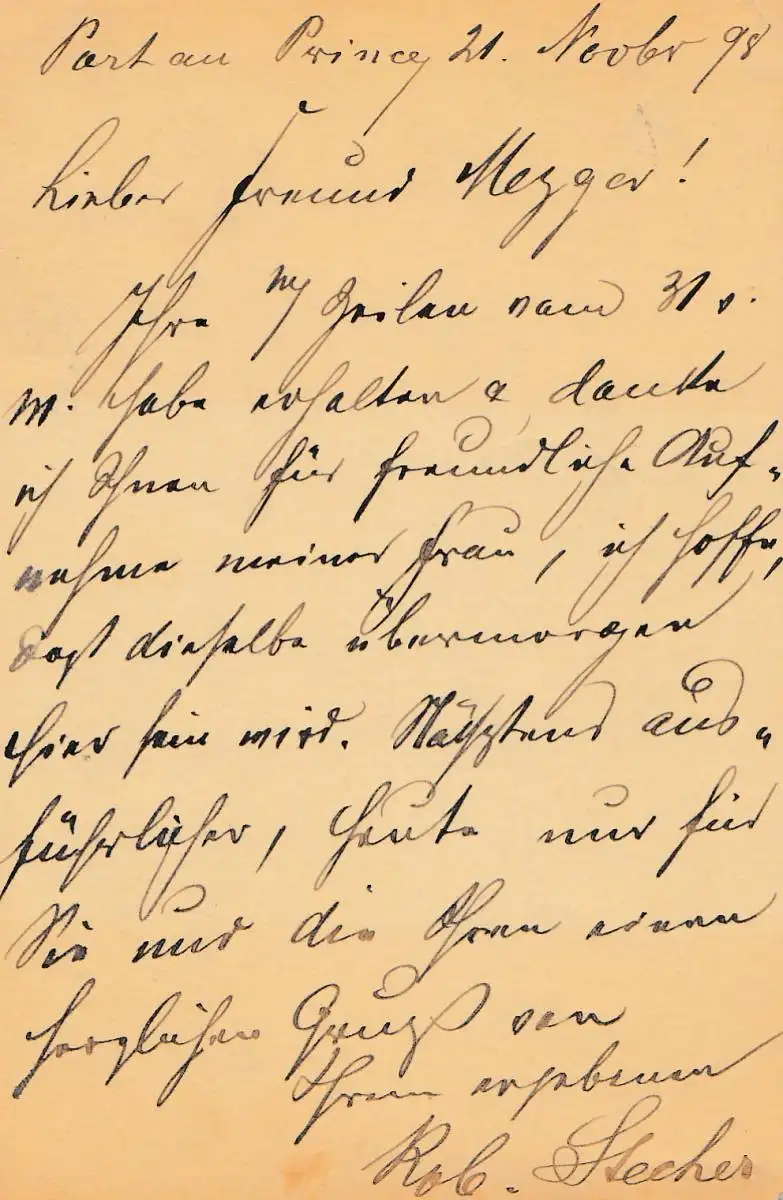 Port au Prince 21. Novbr 98
Lieber Freund Mezger!
Ihre Zeilen vom 31 v.
M. habe erhalten & danke
ich Ihnen für freundliche Auf-
nahme meiner Frau, ich hoffe,
dass dieselbe übermorgen
hier sein wird. Nächstens aus-
führlicher, heute nur für
Sie und die Ihren einen
herzlichen Gruß von
Ihrem ergebenen
Rob. Stecher